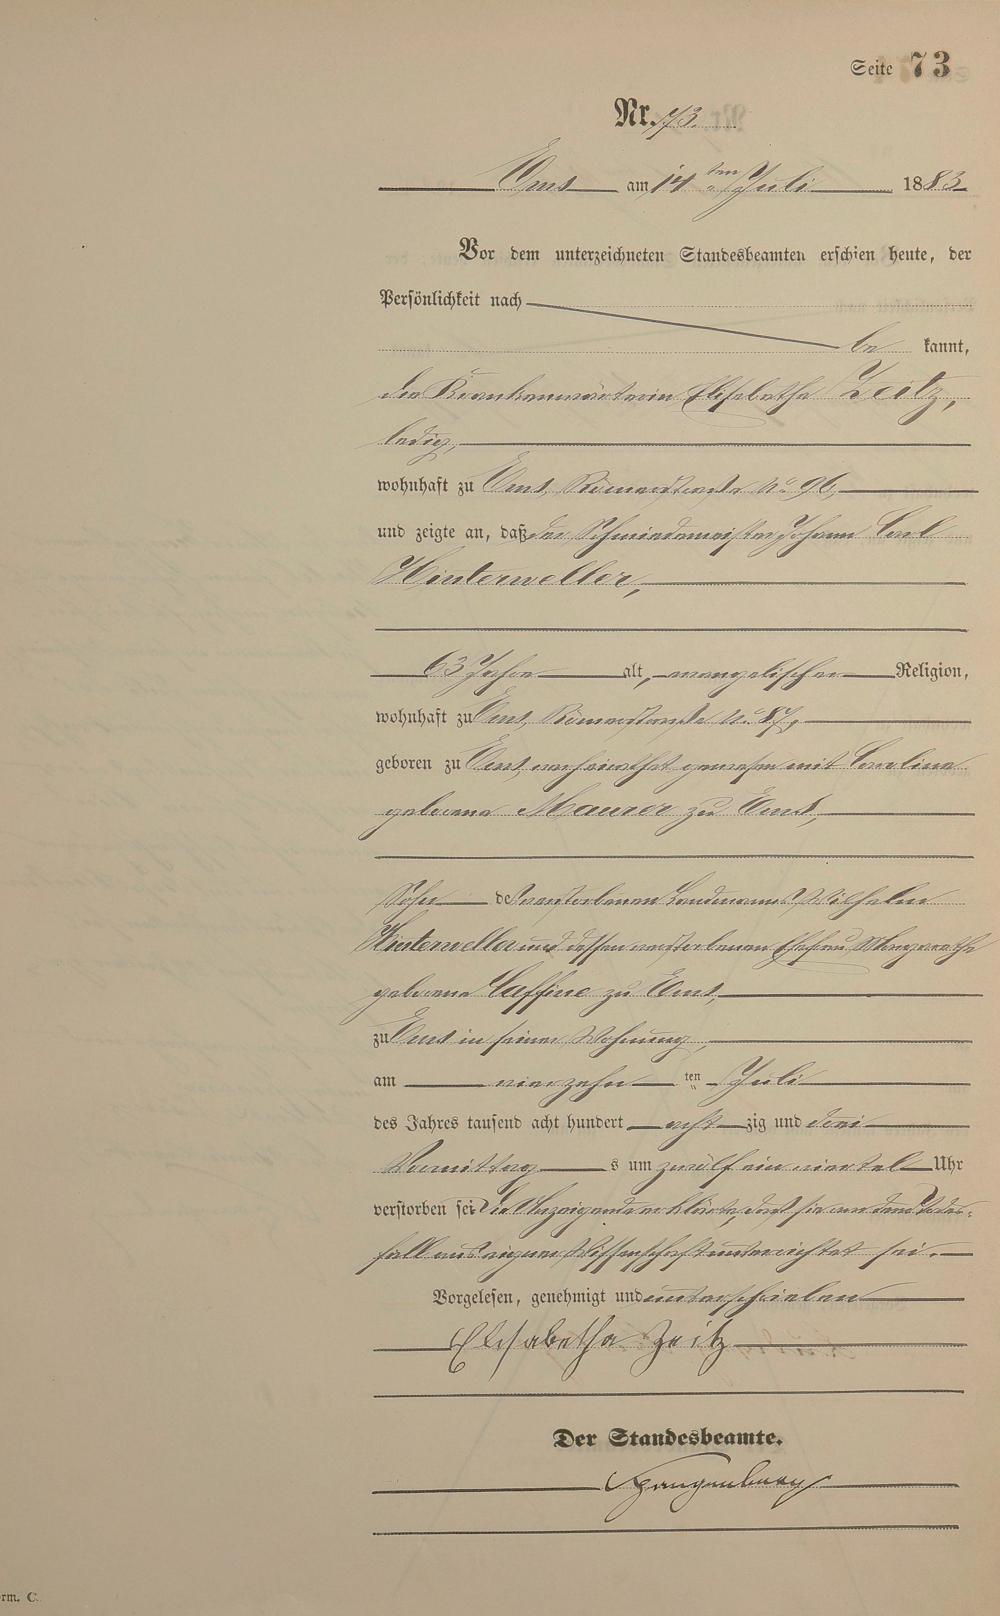 Seite 73
Nr. 73.
Ems am 14ten Juli 1883.
Vor dem unterzeichneten Standesbeamten erschien heute, der
Persönlichkeit nach
be kannt,
die Krankenwärterin Elisabetha Zeitz,
ledig,
wohnhaft zu Ems, Römerstraße No 96,
und zeigte an, daß der Schmiedemeister Johann Carl
Hinterweller,
63 Jahre alt, evangelischer Religion,
wohnhaft zu Ems, Römerstraße No 87,
geboren zu Ems, verheirathet gewesen mit Caroline
geborene Maurer zu Ems,
Sohn des verstorbenen Landmanns Wilhelm
Hinterweller und dessen verstorbenen Ehefrau Margarethe
geborene Caffine zu Ems,
zu Ems in seiner Wohnung,
am vierzehn ten Juli
des Jahres tausend acht hundert acht zig und drei
Vormittag s um zwölf ein viertel Uhr
verstorben sei. Die Anzeigende erklärte, daß sie von dem Todes-
fall aus eigner Wissenschaft unterrichtet sei.
Vorgelesen, genehmigt und unterschrieben
Elisabetha Zeitz
Der Standesbeamte.
Spangenberg
rm. C.